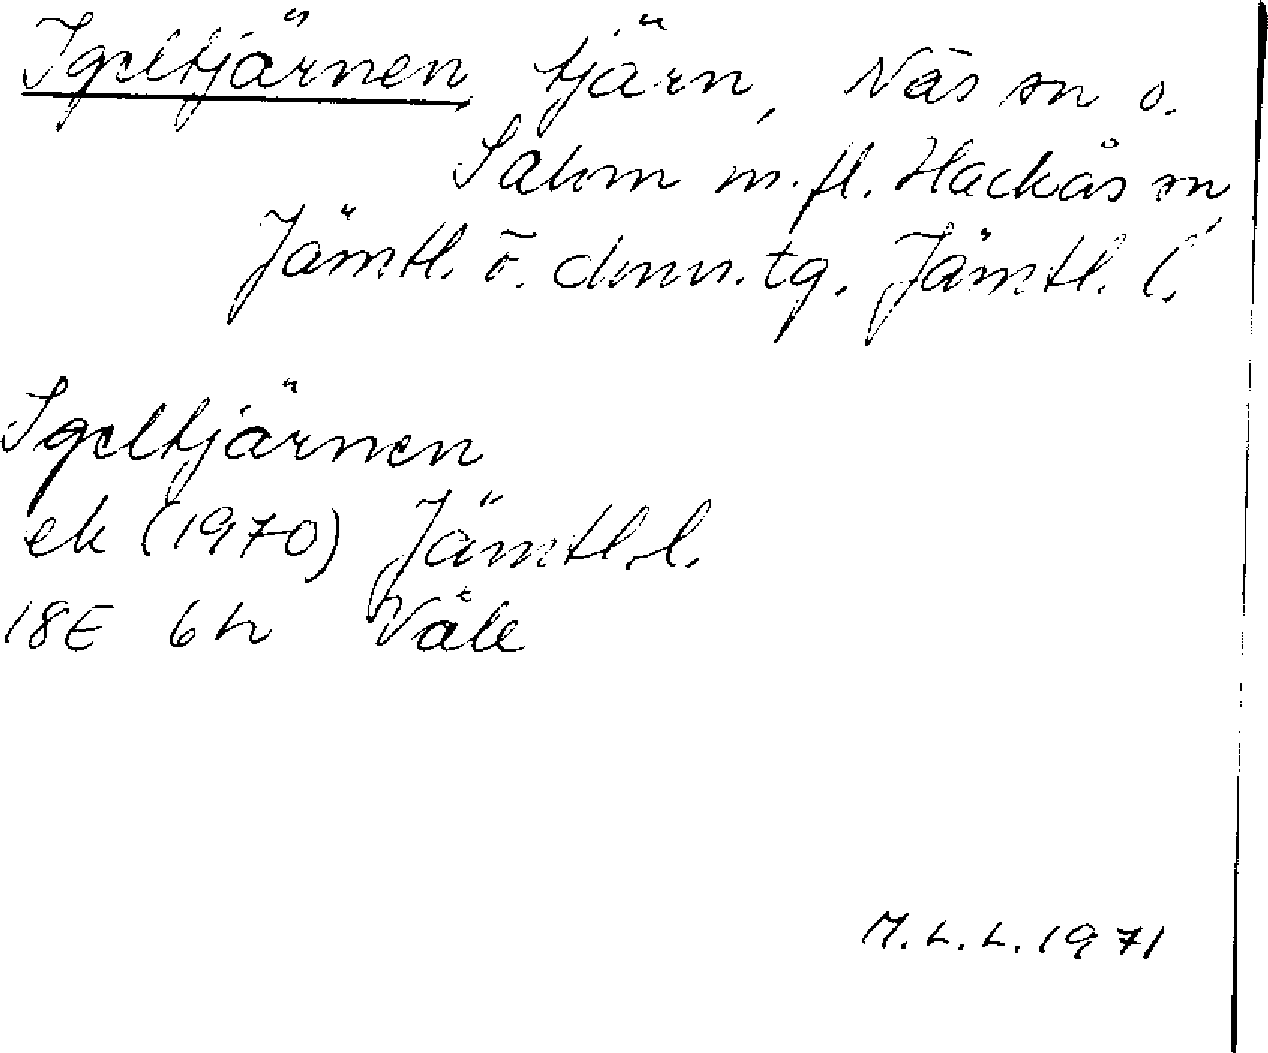 Igeltjärnen, tjärn, Näs sn o.
Sahm m.fl. Hackås sn,
Jämtl. ö. dmns.tg. Jämtl. l.
Igeltjärnen
ek (1970) Jämtl.l.
18E 6h Våle
M.L.L. 1971